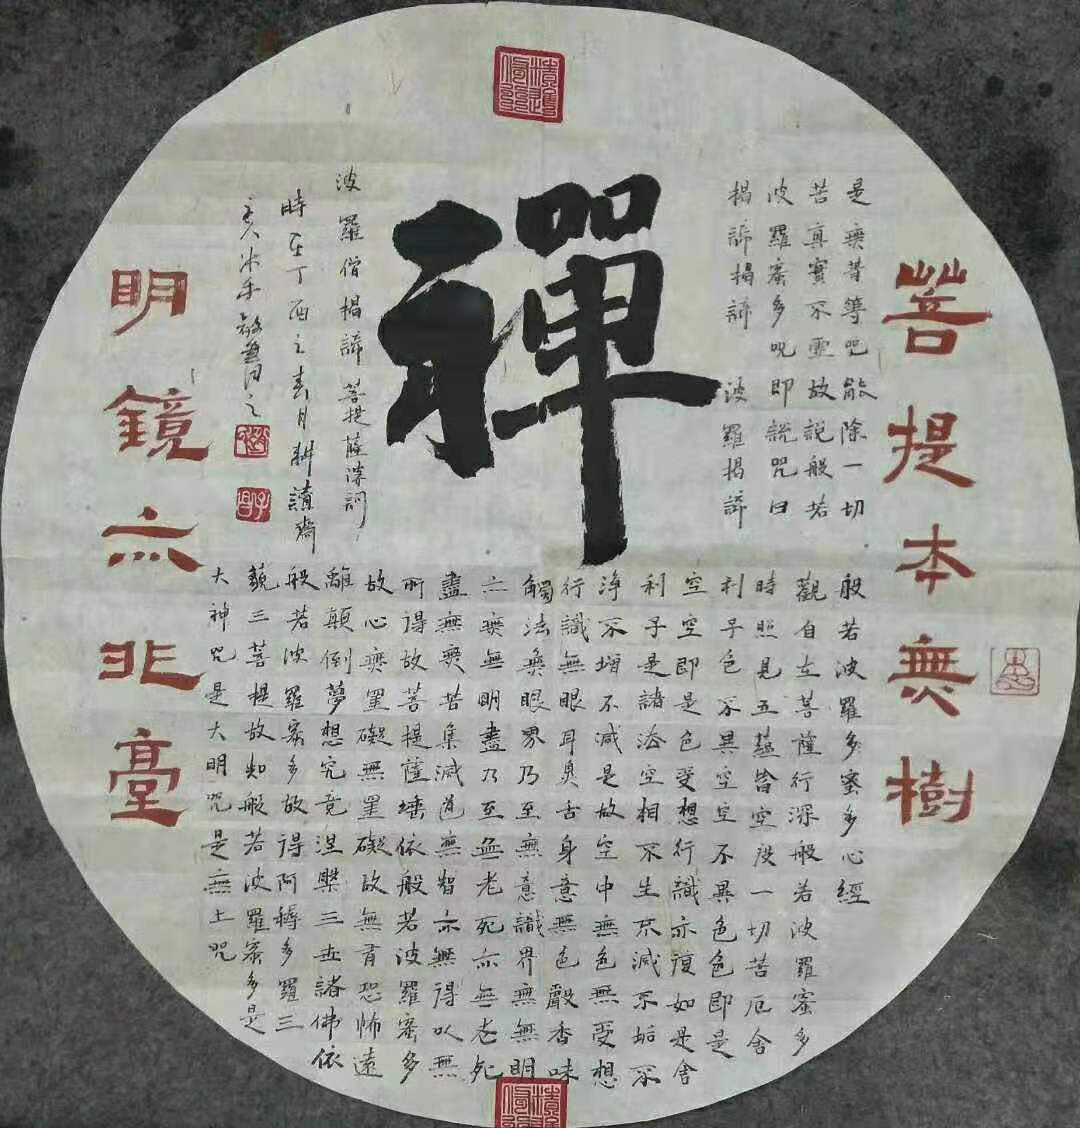 菩提本無樹
禪
明鏡亦非臺
般若波羅多蜜多心經
觀自在菩薩行深般若波羅蜜多
時照見五蘊皆空度一切苦厄舍
利子色不異空空不異色色即是
空空即是色受想行識亦復如是舍
利子是諸法空相不生不滅不垢不
淨不增不減是故空中無色無受想
行識無眼耳鼻舌身意無色聲香味
觸法無眼界乃至無意識界無無明
亦無無明盡乃至無老死亦無老死
盡無無苦集滅道無智亦無得以無
所得故菩提薩埵依般若波羅蜜多
故心無罣礙無罣礙故無有恐怖遠
離顛倒夢想究竟涅槃三世諸佛依
般若波羅蜜多故得阿耨多羅三
藐三菩提故知般若波羅蜜多是
大神咒是大明咒是無上咒
是無等等咒能除一切
苦真實不虛故說般若
波羅蜜多咒即說咒曰
揭諦揭諦 波羅揭諦
波羅僧揭諦菩提薩婆訶
時在丁酉之春月耕讀齋
主人